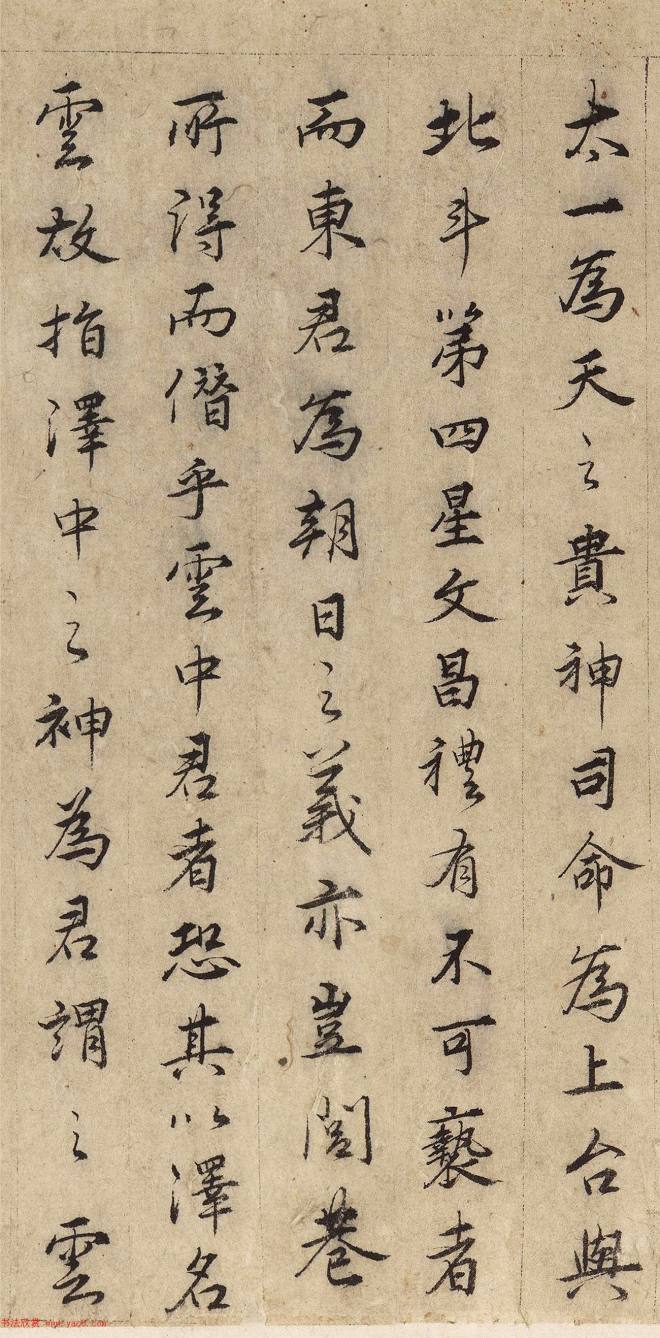 太一為天之貴神司命為上台與
北斗第四星文昌禮有不可褻者
而東君為朝日之義亦豈閭巷
所得而僭乎雲中君者恐其以澤名
雲故指澤中之神為君謂之雲
书法欣赏